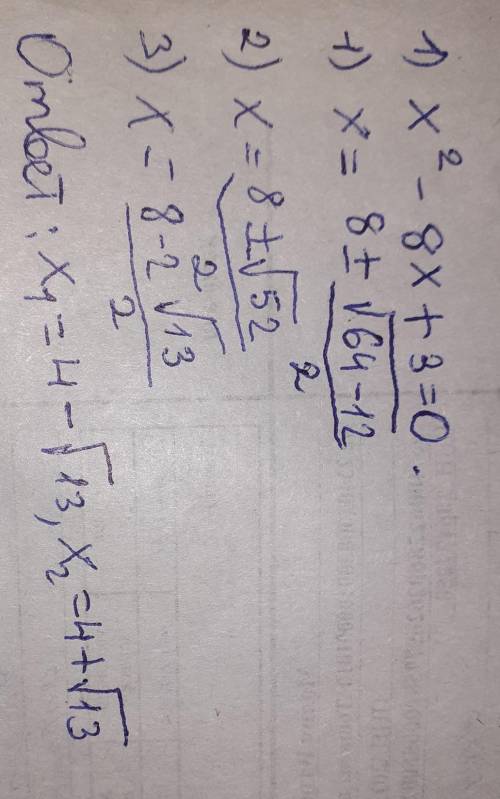 1) x² - 8x + 3 = 0.
1) x = 8 ± √64 - 12 / 2
2) x = 8 ± √52 / 2
3) x = 8 - 2√13 / 2
Ответ: x₁ = 4 - √13, x₂ = 4 + √13